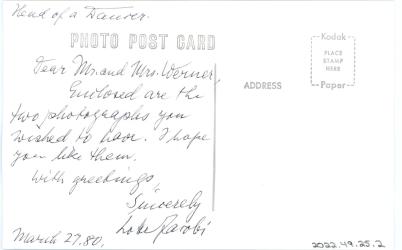 Head of a Dancer.
PHOTO POST CARD
Dear Mr. and Mrs. Werner,
Enclosed are the
two photographs you
wished to have. I hope
you like them.
With greetings,
Sincerely
Lotte Jacobi
March 27, 80.
Kodak
PLACE
STAMP
HERE
Paper
ADDRESS
2022.49.25.2